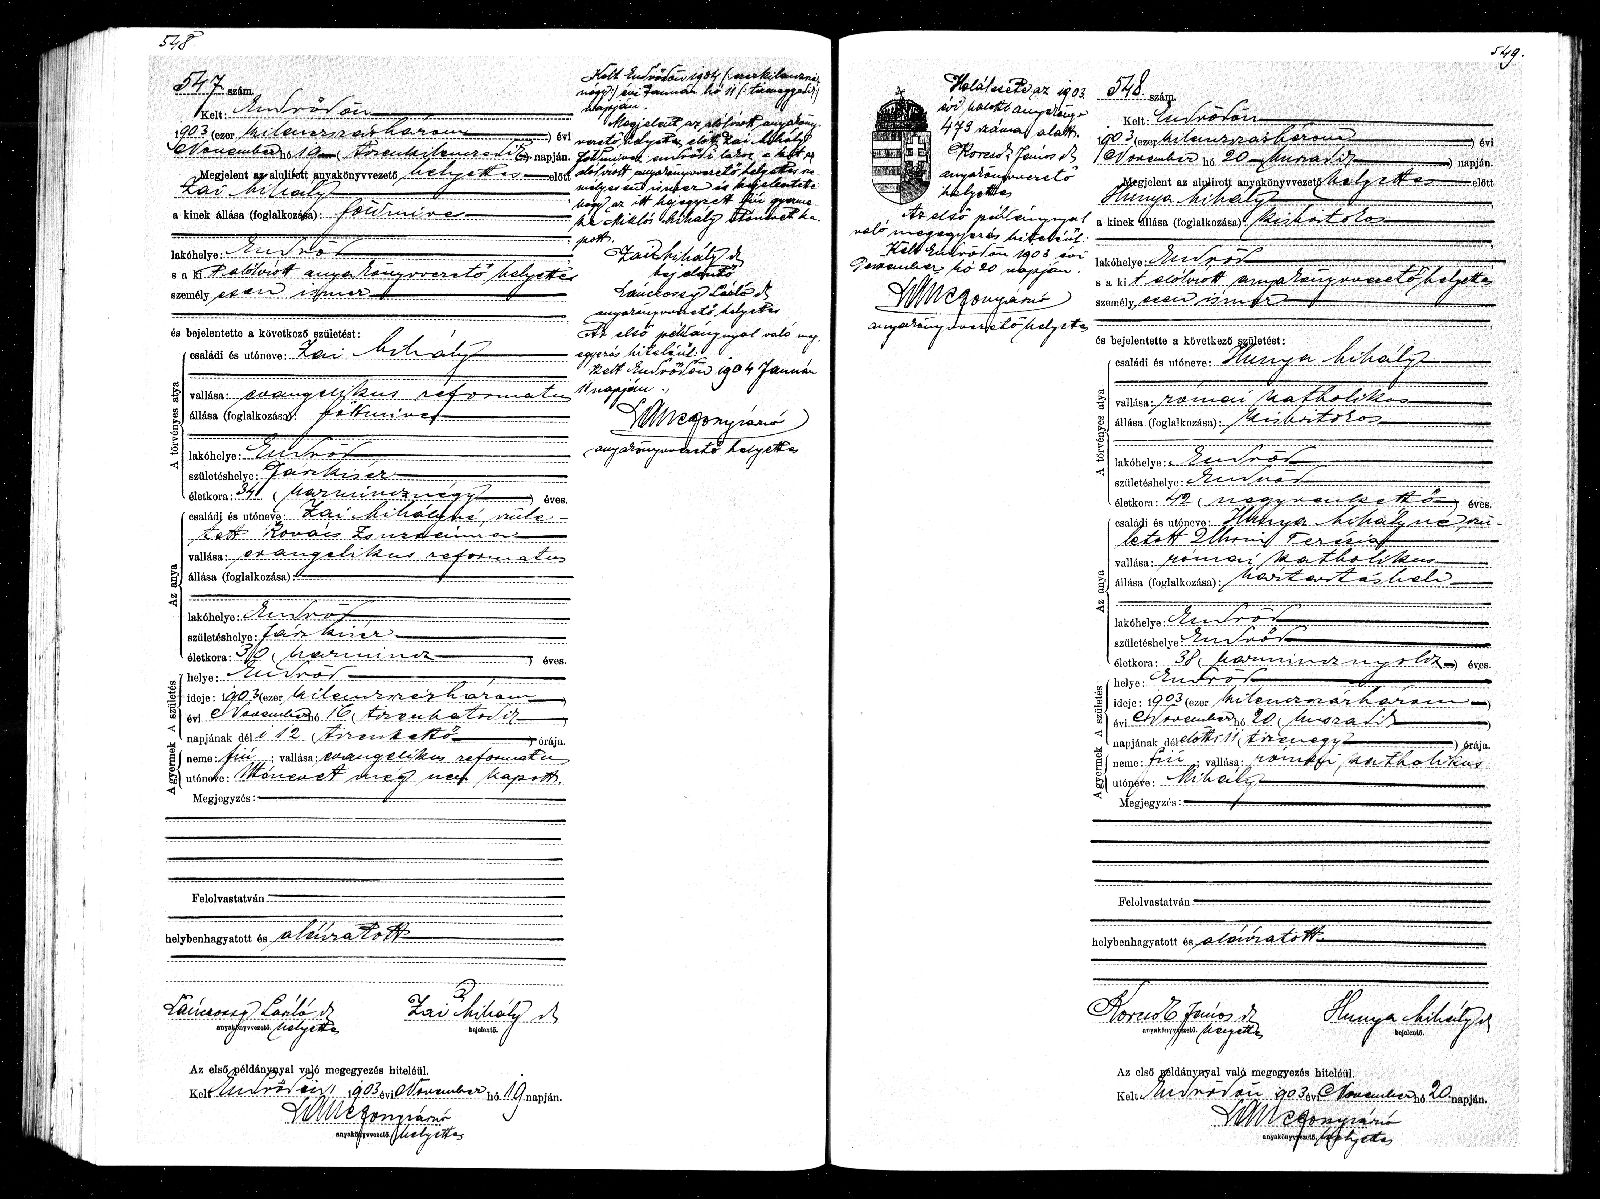 548
547 szám.
Kelt: Endrődön
1903 (ezer kilenczszázhárom) évi
November hó 19 (tizenkilenczedik) napján.
Megjelent az alulirott anyakönyvvezető helyettes előtt
Zai Mihály
a kinek állása (foglalkozása): földmives
lakóhelye: Endrőd
s a ki t alólirott anyakönyvvezető helyettes
személyesen ismer
és bejelentette a következő születést:
A törvényes atya
családi és utóneve: Zai Mihály
vallása: evangelikus reformatus
állása (foglalkozása): földmives
lakóhelye: Endrőd
születéshelye: Jászkisér
életkora: 34 (harmincznégy) éves.
Az anya
családi és utóneve: Zai Mihályné, szüle-
tett Kovács Zsuzsánna
vallása: evangelikus reformatus
állása (foglalkozása):
lakóhelye: Endrőd
születéshelye: Jászkisér
életkora: 30 (harmincz) éves.
A születés
helye: Endrőd
ideje: 1903 (ezer kilenczszázhárom)
évi November hó 16 (tizenhatodik)
napjának dél e 12 (tizenkettő) órája.
A gyermek
neme: fiú; vallása: evangelikus reformatus
utóneve: Utónevet még nem kapott.
Megjegyzés:
Felolvastatván
helybenhagyatott és aláiratott
Lánczossy László dk Zai Mihály dk
anyakönyvvezető helyettes bejelentő.
Az első példánynyal való megegyezés hiteléül.
Kelt Endrődön, 1903 évi November hó 19 napján.
anyakönyvvezető helyettes
Kelt Endrődön 1904 (ezerkilenczszáz
négy) évi Január hó 11 (tizenegyedik)
napján.
Megjelent az alólirott anyakönyv-
vezető helyettes előtt Zai Mihály
földmives endrődi lakos a kit az
alólirott anyakönyvvezető helyettes sze-
mélyesen ismer és bejelentette
hogy az itt bejegyzett fiú gyerme-
ke Miklós Mihály utónevet ka-
pott.
Zai Mihály dk
bejelentő
Lánczossy László dk
anyakönyvvezető helyettes
Az első példánynyal való meg-
egyezés hiteléül.
Kelt Endrődön 1904 Január
11 napján.
anyakönyvvezető helyettes
549.
Halálesete az 1903
évi halotti anyakönyv
479 száma alatt.
Korcsok János dk
anyakönyvvezető
helyettes
Az első példánynyal
való megegyezés hiteléül.
Kelt Endrődön 1903 évi
November hó 20 napján.
anyakönyvvezető helyettes
548 szám.
Kelt: Endrődön
1903 (ezer kilenczszázhárom) évi
November hó 20 (huszadik) napján.
Megjelent az alulirott anyakönyvvezető helyettes előtt
Hunya Mihály
a kinek állása (foglalkozása): kisbirtokos
lakóhelye: Endrőd
s a ki t alólirott anyakönyvvezető helyettes
személyesen ismer
és bejelentette a következő születést:
A törvényes atya
családi és utóneve: Hunya Mihály
vallása: római katholikus
állása (foglalkozása): kisbirtokos
lakóhelye: Endrőd
születéshelye: Endrőd
életkora: 42 (negyvenkettő) éves.
Az anya
családi és utóneve: Hunya Mihályné, szü-
letett Terézia
vallása: római katholikus
állása (foglalkozása): háztartásbeli
lakóhelye: Endrőd
születéshelye: Endrőd
életkora: 38 (harmincznyolcz) éves.
A születés
helye: Endrőd
ideje: 1903 (ezer kilenczszázhárom)
évi November hó 20 (huszadik)
napjának délelőtti 11 (tizenegy) órája.
A gyermek
neme: fiú; vallása: római katholikus
utóneve: Mihály
Megjegyzés:
Felolvastatván
helybenhagyatott és aláiratott.
Korcsok János dk Hunya Mihály dk
anyakönyvvezető helyettes bejelentő.
Az első példánynyal való megegyezés hiteléül.
Kelt Endrődön 1903 évi November hó 20 napján.
anyakönyvvezető helyettes